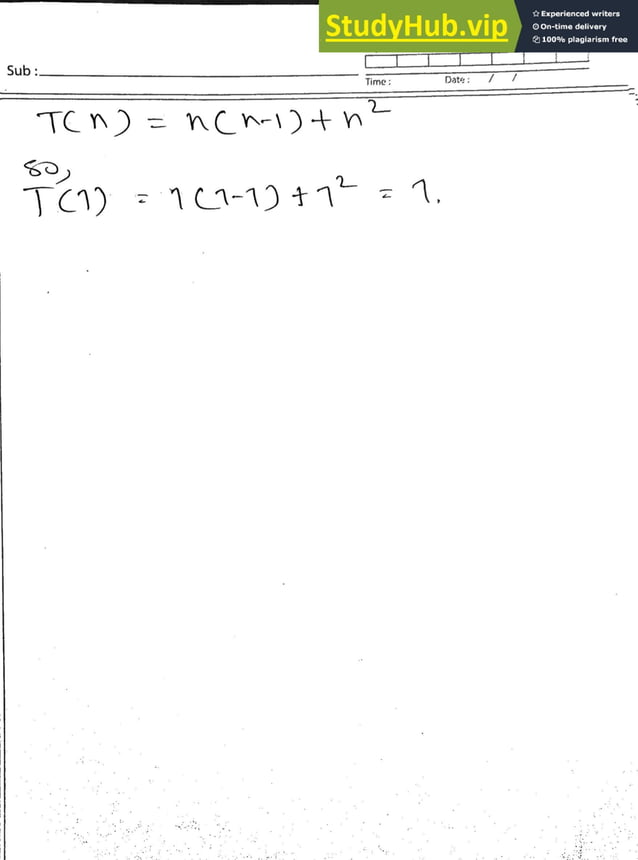 StudyHub.vip
☆ Experienced writers
On-time delivery
100% plagiarism free
Sub :
Time :
Date : / /
T(n) = n(n-1) + n²
so,
T(1) = 1(1-1) + 1² = 1.